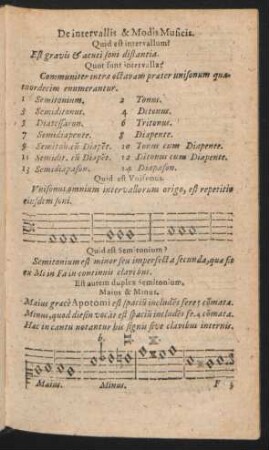 De intervallis & Modis Musicis.
Quid est intervallum?
Est gravis & acuti soni distantia.
Quot sunt intervalla?
Communiter intra octavam præter unisonum qua-
tuordecim enumerantur.
1 Semitonium, 2 Tonus.
3 Semiditonus. 4 Ditonus.
5 Diatessaron. 6 Tritonus.
7 Semidiapente. 8 Diapente.
9 10 Tonus cum Diapente.
11 12 Ditonus cum Diapente
13 Semidiapason. 14 Diapason.
Quid est Unisonus.
Unisonus omnium intervallorum origo, est repetitio
eiusdem soni.
Quid est Semitonium?
Semitonium est minor seu imperfecta secunda, quæ fit
ex Mi in Fa in continuis clavibus.
Est autem duplex Semitonium,
Maius & Minus.
Maius græcè Apotomi est spaciū includēs
Minus, quod diesin vocāt est spaciū includēs
Hæc in cantu notantur his signis sive clavibus internis.
Maius. Minus. F